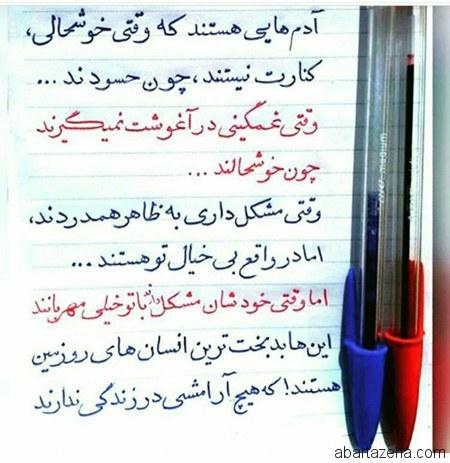 آدم‌هایی هستند که وقتی خوشحالی،
کنارت نیستند، چون حسودند ...
وقتی غمگینی در آغوشت نمیگیرند
چون خوشحالند ...
وقتی مشکل داری به ظاهر همدردند،
اما در واقع بی خیال تو هستند ...
اما وقتی خودشان مشکل دارند با تو خیلی مهربانند
این‌ها بدبخت‌ترین انسان‌های روزمین
هستند! که هیچ آرامشی در زندگی ندارند
abartazeha.com